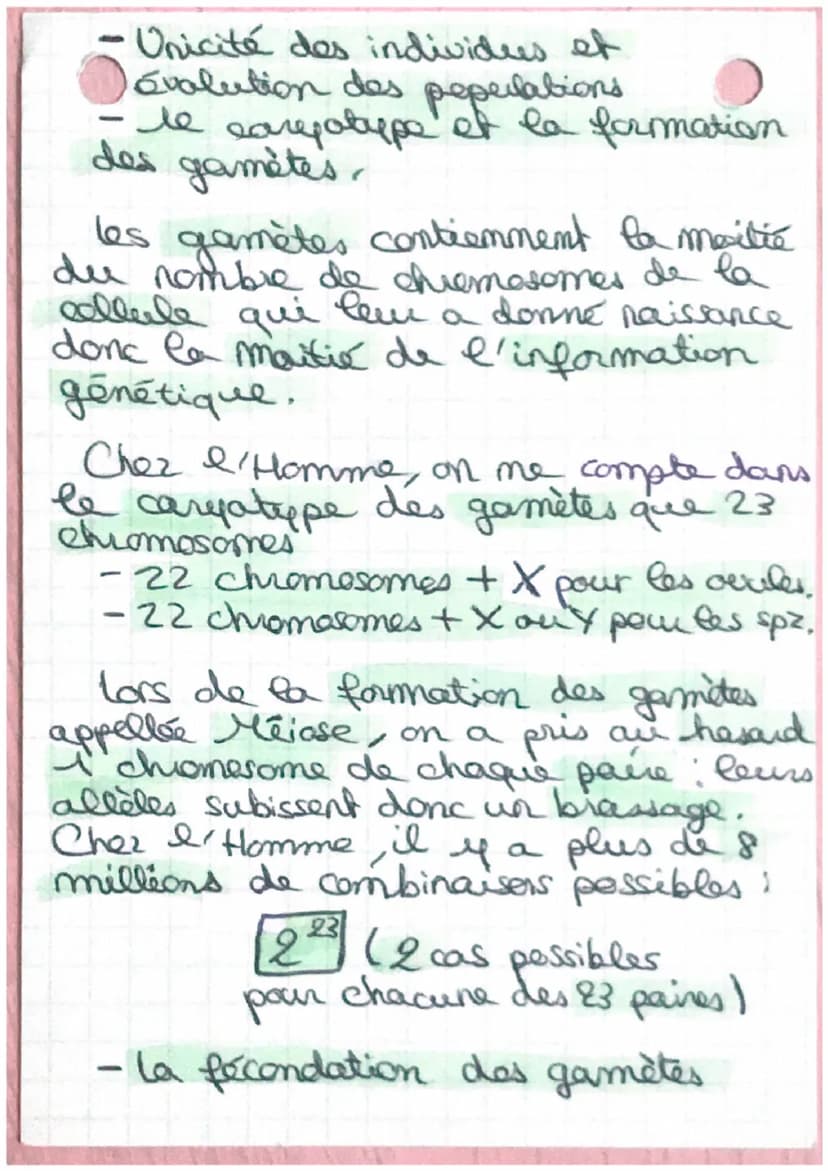 - Unicité des individus et
évolution des populations
- le caryotype et la formation
des gamètes.
les gamètes contiennent la moitié
du nombre de chromosomes de la
cellule qui leur a donné naissance
donc la moitié de l'information
génétique.
Chez l'Homme, on ne compte dans
le caryotype des gamètes que 23
chromosomes
- 22 chromosomes + X pour les ovules.
- 22 chromosomes + X ou Y pour les spz.
Lors de la formation des gamètes
appellée Méiose, on a pris au hasard
1 chromosome de chaque paire : leurs
allèles subissent donc un brassage.
Chez l'Homme, il y a plus de 8
millions de combinaisons possibles :
2²³ (2 cas possibles
pour chacune des 23 paires)
- La fécondation des gamètes